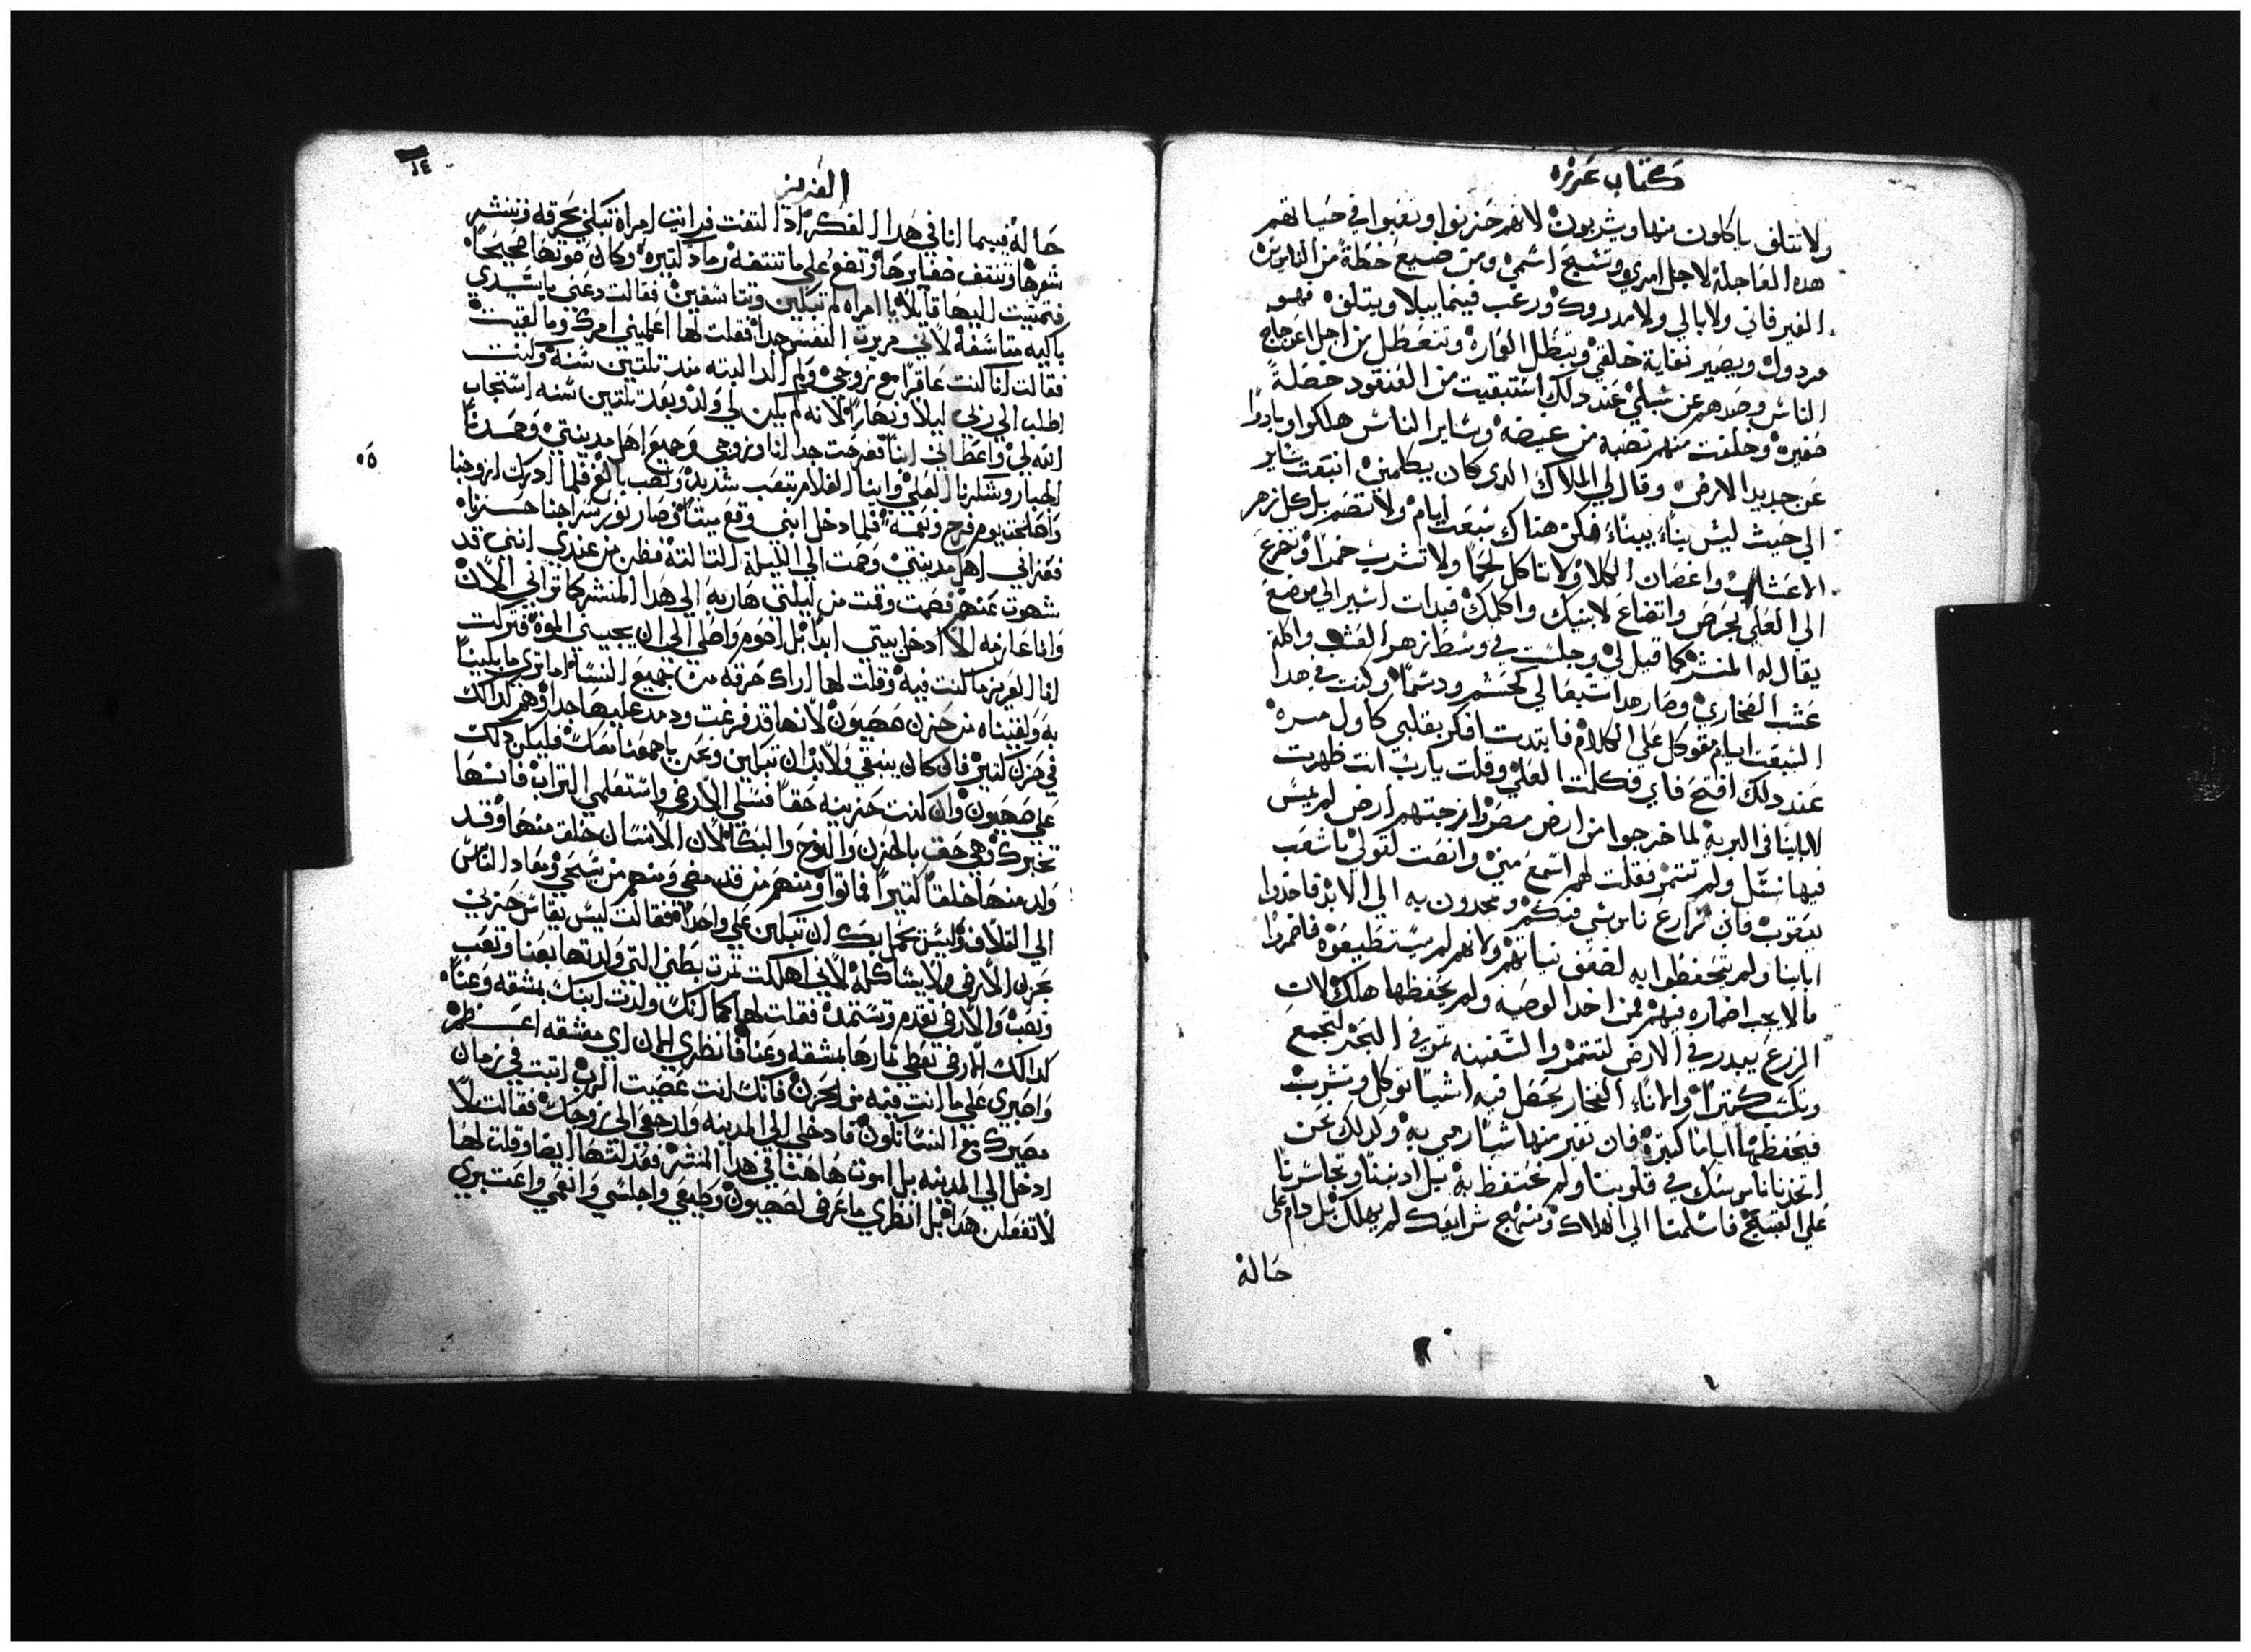 كتاب عزره
ولا تتلف ياكلون منها ويشربون لانهم حزنوا وتعبوا في حياتهم
هده العاجلة لاجل امري وتسبيح اسمي ومن ضيع حظة من الناس
الغير فاني ولا بالي ولا مدروك ورغب فيما يبلا ويتلف فهو
مردول ويصير نفاية خلقي وتبطل العمارة وتتعطل من اجل اعوجاج
الناس وصدهم عن سبلي عند دلك استبقيت من العنقود خصلة
صغيرة وخلفت منهم نصبه من غيضه وساير الناس هلكوا وبادوا
عن جديد الارض وقال لي الملاك الدي كان يكلمني انتقت ساير
الي حيث ليس بناء ببناء فكن هناك سبعت ايام ولا تصم بل كل زهر
الاعشاب واغصان الكلا ولا تاكل لحما ولا تشرب خمرا وتضرع
الي العلي بحرص واتضاع لابنيك واكلمك فبدات اسير الي موضع
يقال له المنشر كما قيل لي وجلست في وسط زهر العشب واكلة
عشب الفخاري وصار هدا شبعا لي كجسم ودسما وكنت في هدا
السبعت ايام مقوكل علي الكلام فابتدت افكر بقلبي كاول مره
عند دلك افتح فاي فكلمت العلي وقلت يارب انت ظهرت
لابابينا في البرية لما خرجوا من ارض مصر وازجتهم ارض لم يمس
فيها نسل ولم تتمر فقلت لهم اسمع مني وانصت لقولي ياشعب
يعقوب فاني زارع ناموسي فيكم وتمجدون به الي الابد فاخدوا
اباينا ولم يتحفظوا به لضعف نياتهم ولانهم لم يستطيعوه فاضمروا
مالا يجب اضماره فيهم فمن اخد الوصيه ولم يحفظها هلك لان
الزرع يبدر في الارض لتتمر والسفينه تمر في البحر لتجمع
وتكسب كتيرا والاناء الفخار يحصل فيه اشيا توكل وتشرب
فيحفظها اياما كتيرة فان تغير منها شيا رمي به وكدلك نحن
اتخدنا ناموسك في قلوبنا ولم نحتفظ به بل ادنبنا وتجاسرنا
علي القبيح فاسلمنا الي الهلاك ومنهج شرايعك لم يهلك بل دام علي
حاله
١٤
العزيز
حاله فبينما انا في هدا الفكر ادا التفت فرايت امراة تبكي بحرقه وتنشر
شعرها وتنتف ضفايرها وتضع علي ما تنتفه رماد كتيرة وكان صوتها عجيجا
فتمشيت اليها قايلا يا امراه لم تبكين وتتاسفين فقالت دعني ياسيدي
باكيه متاسفة لاني مريرت النفس جدا فقلت لها اعلميني امرك وما لقيت
فقالت انا كنت عاقرا مع زوجي ولم الد البته مند تلتين سنة وكنت
اطلب الي ربي ليلا ونهارا لانه لم يكن لي ولد وبعد تلتين سنه استجاب
الله لي واعطاني ابنا ففرحت جدا انا وزوجي وجميع اهل مدينتي وحمدنا
الجبار وشكرنا العلي وابنا الغلام بتعب شديد ونصب بالغ فلما ادرك ازوجنا
واصلحت يوم فرح ونعمة فلما دخل ابني وقع ميتا فصار نور سراجنا حزنا
٥٥
فعزاني اهل مدينتي وصمت الي الليلة التالتة فظن من عندي انني قد
شهوت عنهم فصمت وقمت من ليلتي هاربه الي هدا المنشر كما تراني الان
وانا عازمه الا ادخل بيتي ابدا بل اصوم واصلي الي ان يجيبني الموة فتركت
انا العزيز ما كنت فيه وقلت لها اراك حرقه من جميع النسا اما تري ما بلينا
به ولقيناه من حزن صهيون لانها قد فرغت ودمدم عليها جدا وهم كدالك
في حزن كتير فان كان ينبغي ولابد ان تبكين ونحن باجمعنا معك فليكن دلك
علي صهيون وان كنت حزينه حقا فسلي الارض واستعلمي التراب فانها
تخبرك وهي حق بالحزن والنوح والبكا لان الانسان خلق منها وقد
ولد منها خلقا كتيرا فماتوا ومنهم من قد مضي ومنهم من سيمضي ومعاد الناس
الي التلاف وليس يجمل بك ان تبكين علي واحدا فقالت ليس يقاس حزني
بحزن الارض ولا يشاكله لاني اهلكت تمرت بطني التي ولدتها بعنا وتعب
ونصب والارض تقدم وتستمد فقلت لها كما انك ولدت ابنك بمشقه وعناء
كدالك الارض تعطي تمارها بمشقه وعنا فانظري الان اي مشقه اعظم
واصبري علي ما انت فيه من الحزن فانك انت عصيت الرب اتيت في زمان
مصيرك مع النسا تلون فادخلي الي المدينه وارجعي الي زوجك فقالت لا
ادخل الي المدينه بل اموت هاهنا في هدا المنشر فعدلتها ايضا وقلت لها
لا تفعلن هدا بل انظري ما عرض لصهيون وطيعي واجلسي وافهمي واعتبري